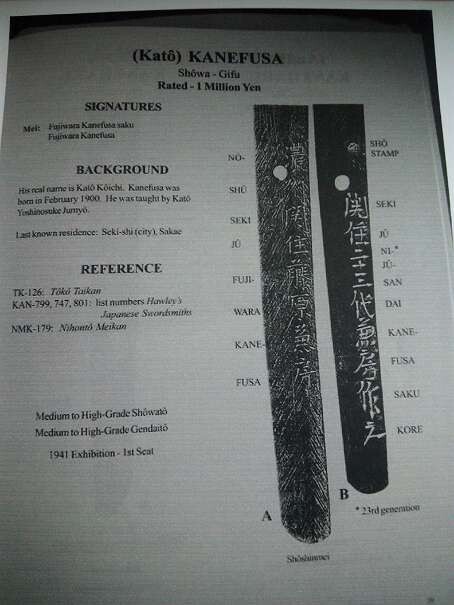 (Katô) KANEFUSA
Shôwa - Gifu
Rated - 1 Million Yen
SIGNATURES
Mei: Fujiwara Kanefusa saku
Fujiwara Kanefusa
BACKGROUND
His real name is Katô Kôichi. Kanefusa was
born in February 1900. He was taught by Katô
Yoshinosuke Jumyô.
Last known residence: Seki-shi (city), Sakae
REFERENCE
TK-126: Tôkô Taikan
KAN-799, 747, 801: list numbers Hawley's
Japanese Swordsmiths
NMK-179: Nihontô Meikan
Medium to High-Grade Shôwatô
Medium to High-Grade Gendaitô
1941 Exhibition - 1st Seat
NO-
SHÛ
SEKI
JÛ
FUJI-
WARA
KANE-
FUSA
濃州関住藤原兼房
A
Shôshinmei
関住二十三代兼房作之
B
SHÔ
STAMP
SEKI
JÛ
NI-*
JÛ-
SAN
DAI
KANE-
FUSA
SAKU
KORE
* 23rd generation